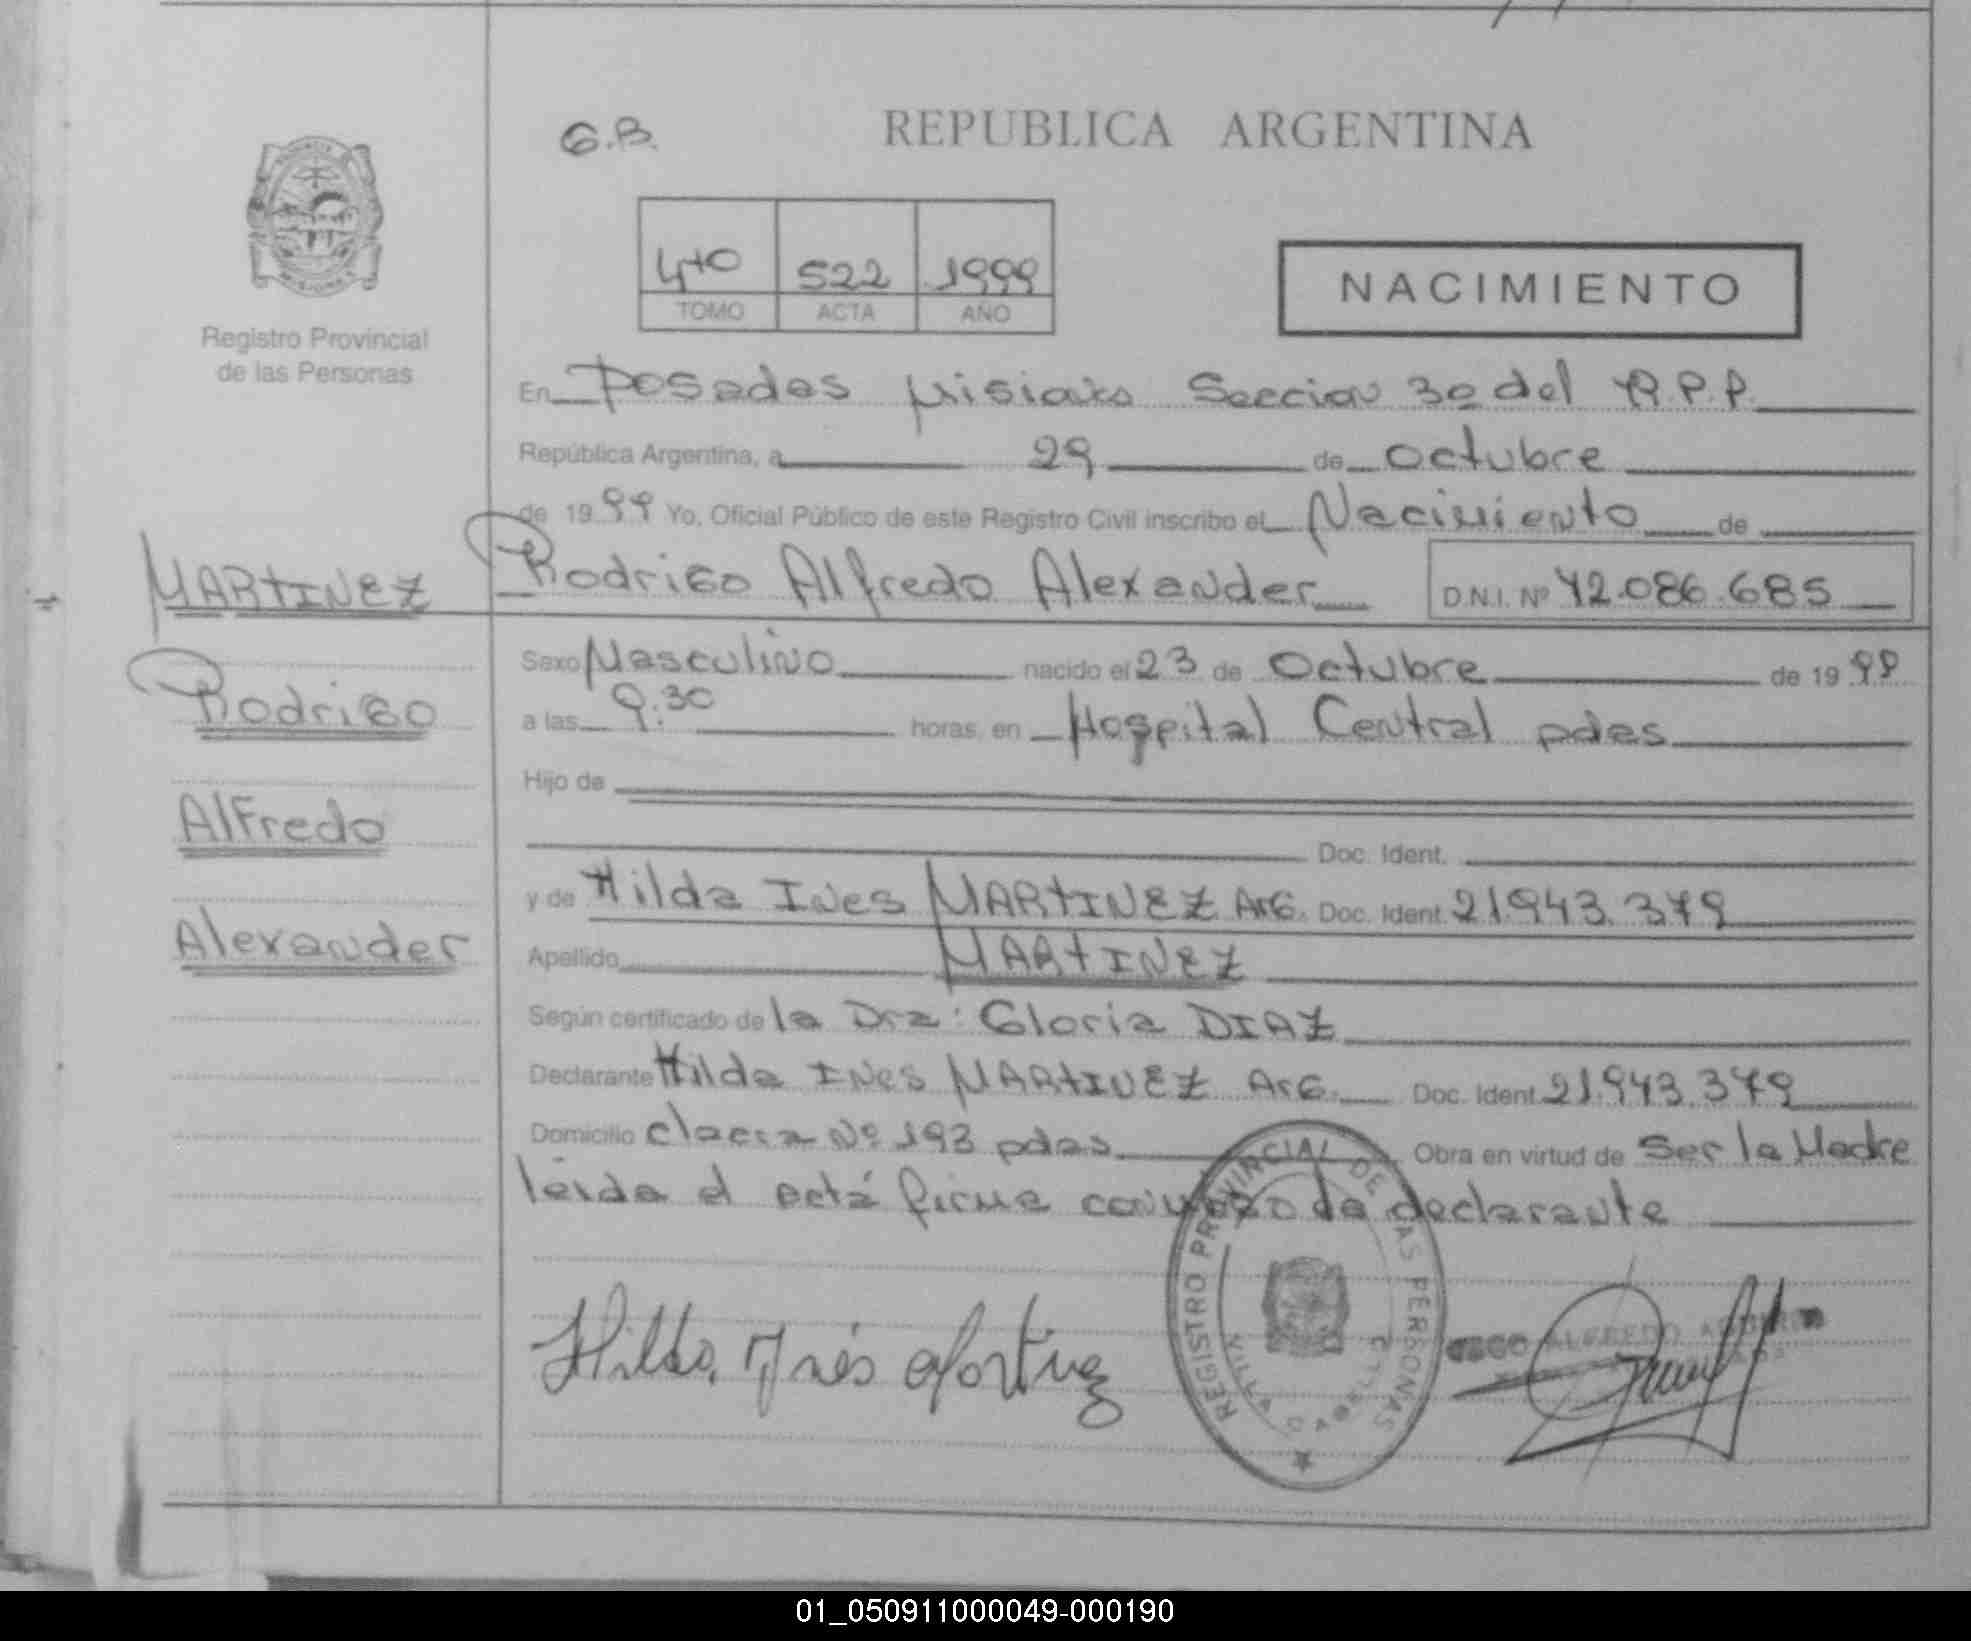 G.B.
REPUBLICA ARGENTINA
4to 522 1999
TOMO ACTA AÑO
NACIMIENTO
Registro Provincial
de las Personas
En Posadas Misiones Seccion 3º del R.P.P.
República Argentina, a 29 de Octubre
de 1999 Yo, Oficial Público de este Registro Civil inscribo el Nacimiento de
MARTINEZ
Rodrigo Alfredo Alexander D.N.I. Nº 42.086.685
Sexo Masculino nacido el 23 de Octubre de 1999
Rodrigo
a las 9:30 horas, en Hospital Central pdas
Hijo de
Alfredo
Doc. Ident.
y de Hilda Ines MARTINEZ ARG. Doc. Ident. 21.943.379
Alexander
Apellido MARTINEZ
Según certificado de la Dra: Gloria DIAZ
Declarante Hilda Ines MARTINEZ ARG. Doc. Ident. 21.943.379
Domicilio chacra Nº 193 pdas Obra en virtud de Ser la Madre
leida el actá firma conmigo la declarante
Hilda Inés Martinez
REGISTRO PROVINCIAL DE LAS PERSONAS
ALFREDO
01_050911000049-000190